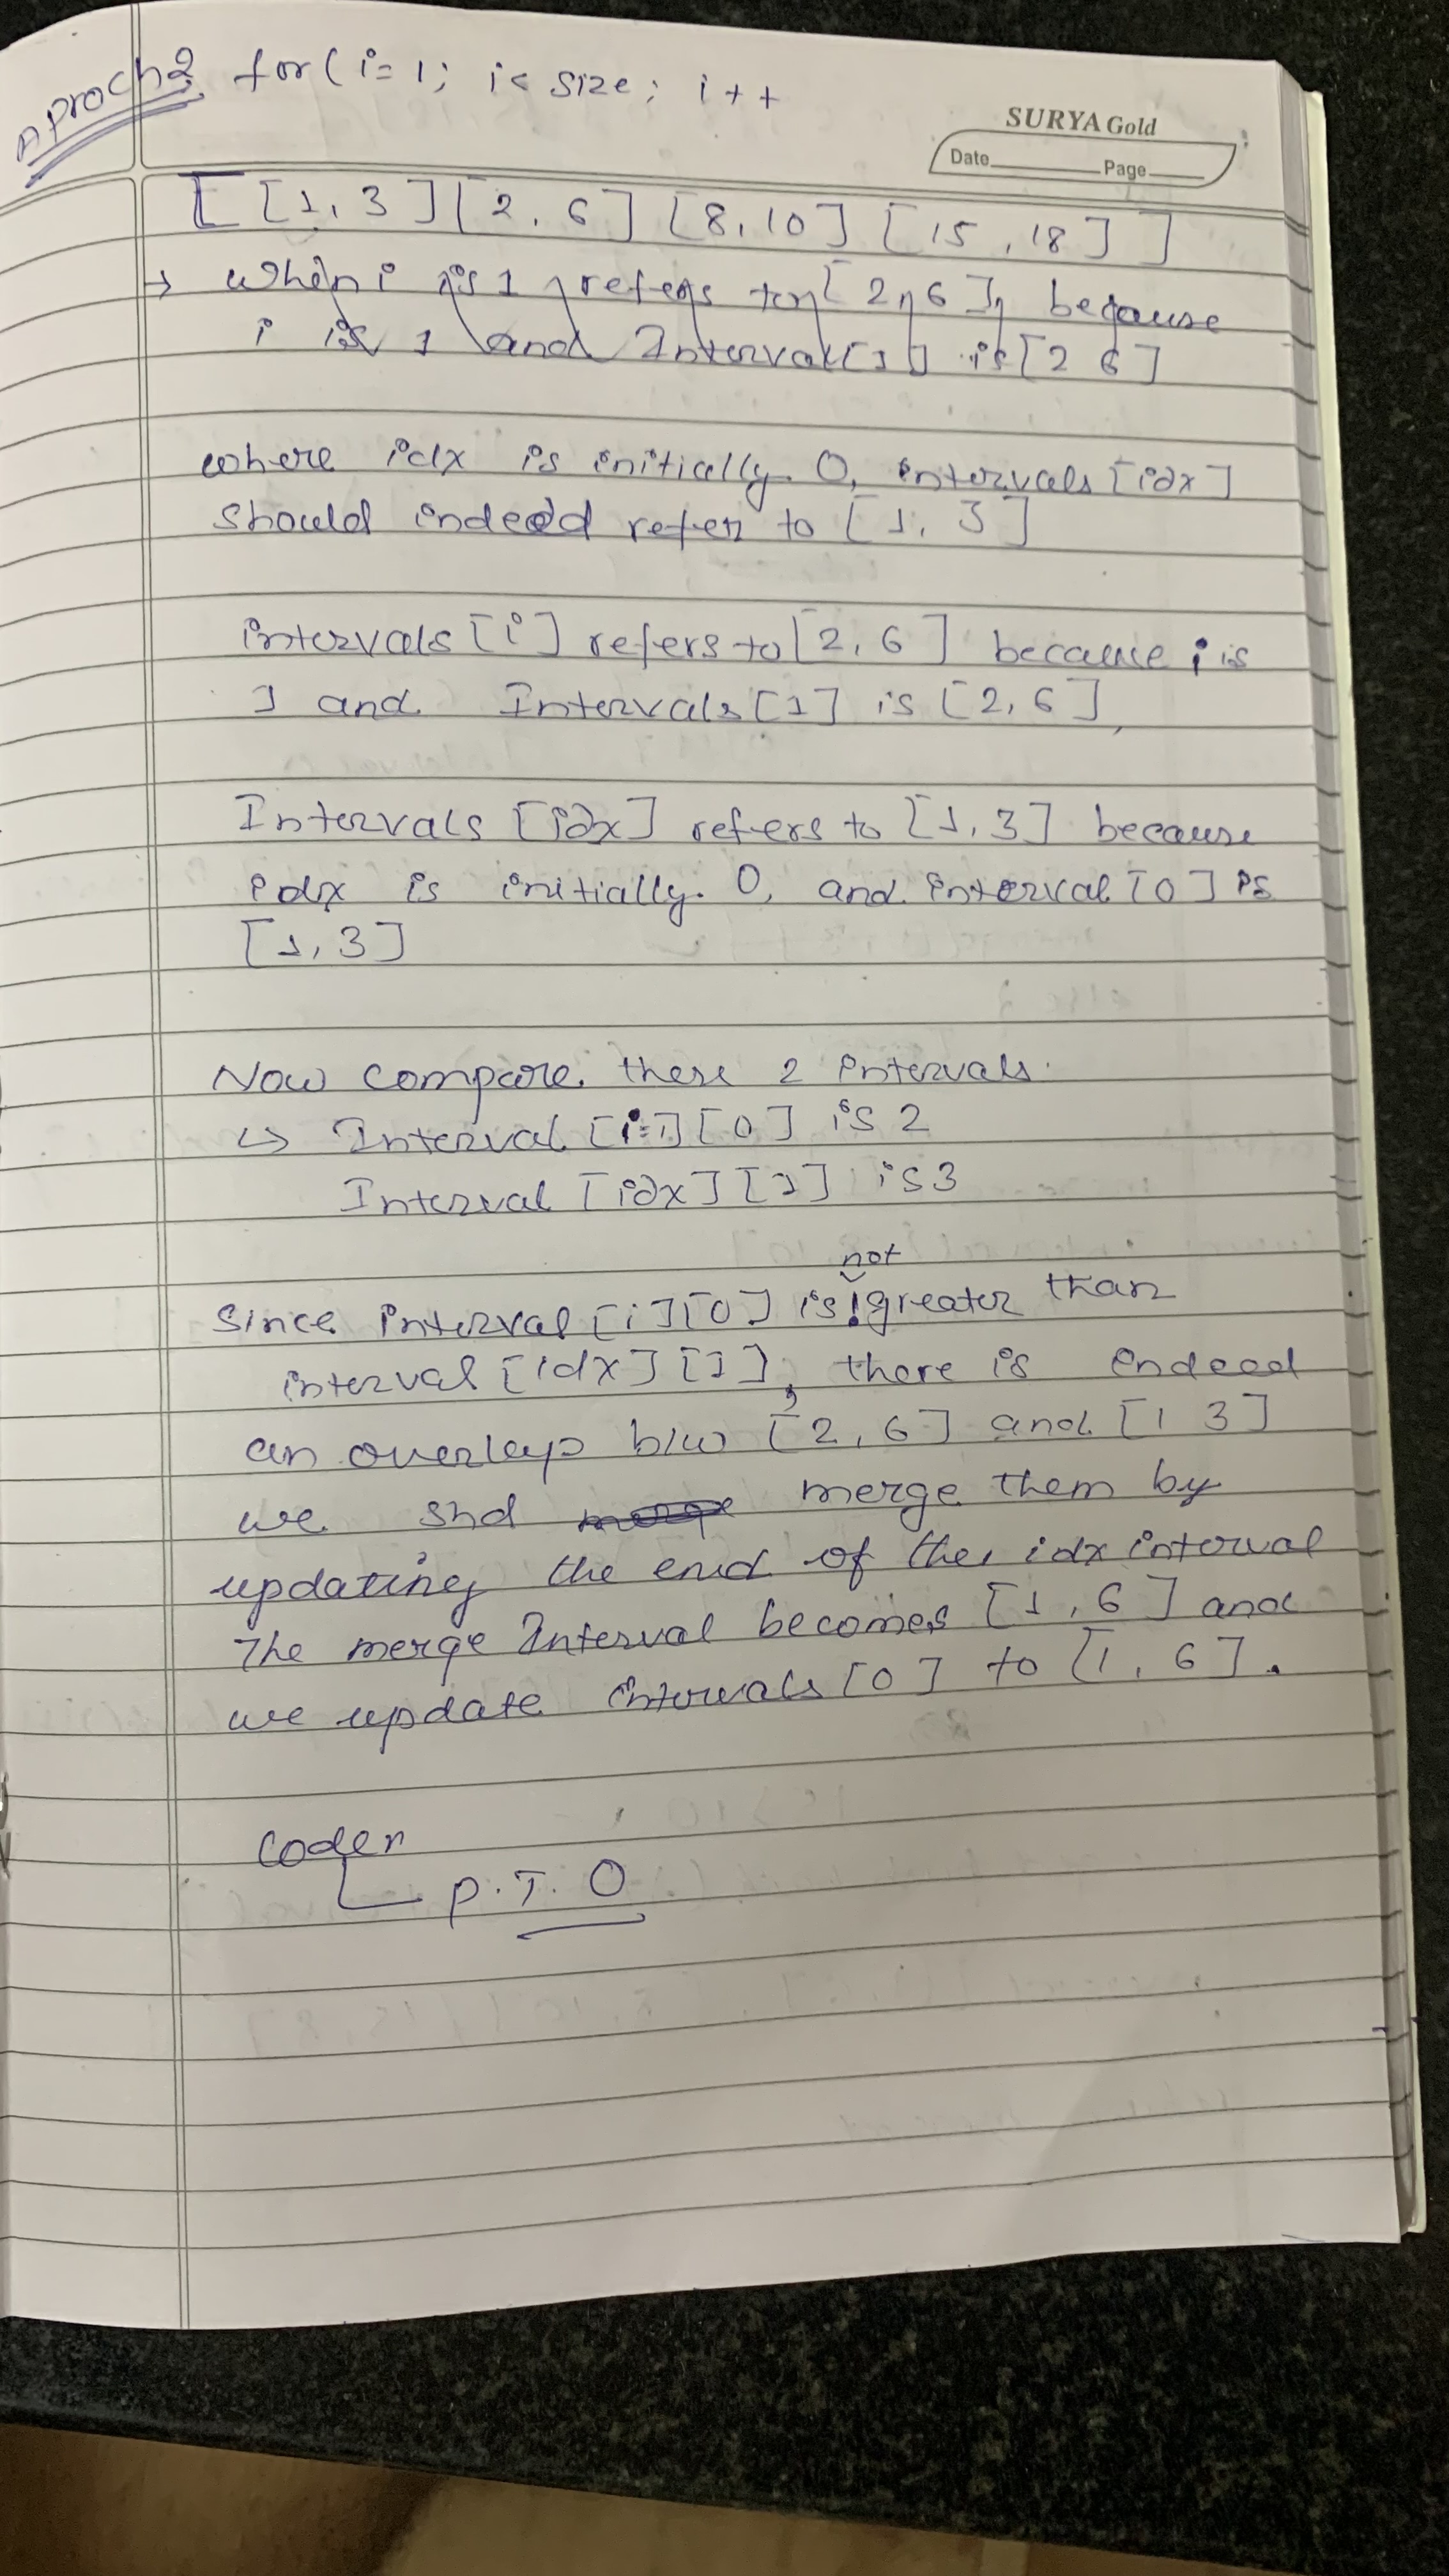 Aproch2 for(i=1; i< size; i++
SURYA Gold
Date Page
[ [1, 3] [2, 6] [8, 10] [15, 18] ]
→ when i is 1 refers to [2, 6], because
i is 1 and Interval[1] is [2 6]
where idx is initially 0, intervals [idx]
should indeed refer to [1, 3]
intervals [i] refers to [2, 6] because i is
1 and Intervals [1] is [2, 6]
Intervals [idx] refers to [1, 3] because
idx is initially 0, and interval [0] is
[1, 3]
Now compare these 2 intervals.
↳ Interval [i=1] [0] is 2
Interval [idx] [1] is 3
not
Since interval [i] [0] is ! greater than
interval [idx] [1], there is indeed
an overlap b/w [2, 6] and [1 3]
we shd merge them by
updating the end of the idx interval
The merge Interval becomes [1, 6] and
we update intervals [0] to [1, 6].
Coden
P.T.O